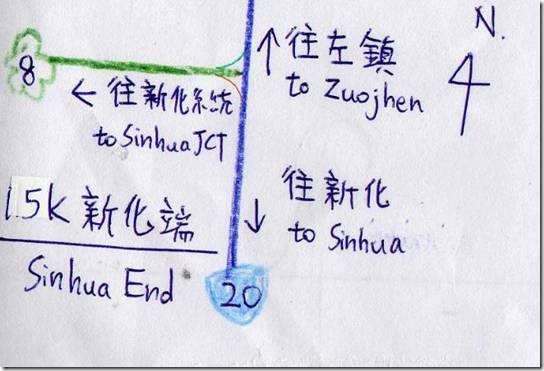 N.
8
↑往左鎮
to Zuojhen
← 往新化系統
to Sinhua JCT
15K 新化端
Sinhua End
↓ 往新化
to Sinhua
20